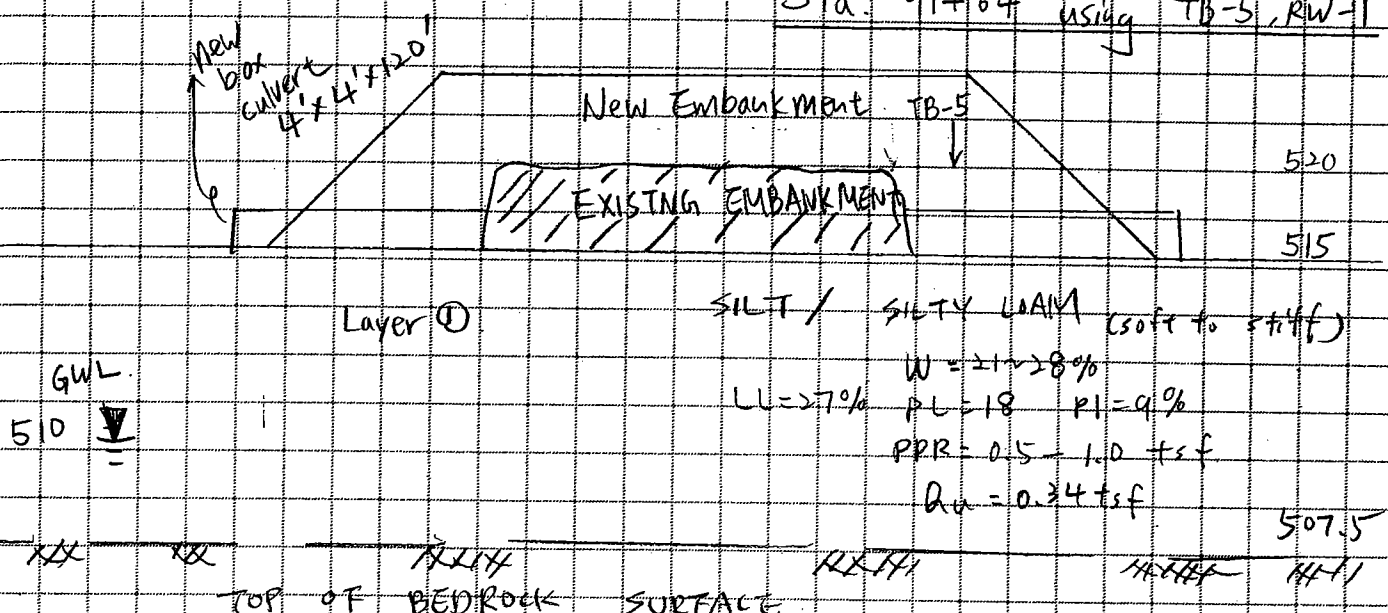 Sta. 91+64 using TB-5, RW-1
new
box
culvert
4'x4'x120'
New Embankment TB-5
520
EXISTNG EMBANKMENT
515
Layer ①
SILT / SILTY LOAM (soft to stiff)
W = 21~28%
GWL
LL=27% PL=18 PI=9%
510
PPR = 0.5 - 1.0 tsf
Qu = 0.34 tsf
507.5
TOP OF BEDROCK SURFACE